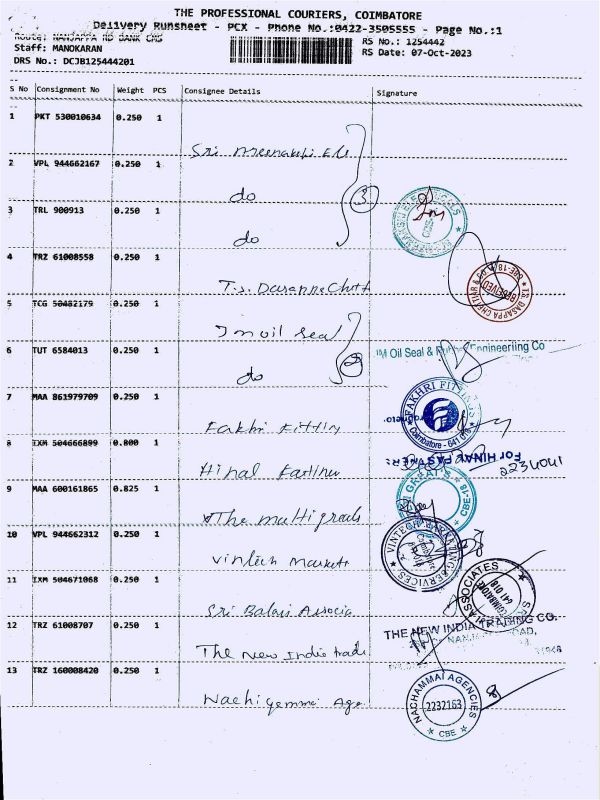 THE PROFESSIONAL COURIERS, COIMBATORE
Delivery Runsheet - PCX - Phone No.:0422-3505555 - Page No.:1
Route: NANJAPPA RD BANK CMS
RS No.: 1254442
Staff: MANOKARAN
RS Date: 07-Oct-2023
DRS No.: DCJB125444201
S No Consignment No Weight PCS Consignee Details Signature
1 PKT 530010634 0.250 1
Sri Meenakshi Ele
2 VPL 944662167 0.250 1
do
3
3 TRL 900913 0.250 1
do
4 TRZ 61008558 0.250 1
T.S. Dasappa Chett
T.S. DASAPPA CHETTIAR & CO
RECEIVED
CBE-18
5 TCG 50482179 0.250 1
Jm oil seal
6 TUT 6584013 0.250 1
do
2
Oil Seal & Engineerling Co
7 MAA 861979709 0.250 1
Fakhri Fittin
FAKHRI FITTINGS
Coimbatore - 641 018
8 IXM 504666899 0.800 1
Hinal Fastner
For HINAL FASTNER:
2234041
9 MAA 600161865 0.825 1
The multi greals
GREAT'S
CBE-18
10 VPL 944662312 0.250 1
Vintech Marketi
VINTECH MARKETING SERVICES
11 IXM 504671068 0.250 1
Sri Balaji Associa
ASSOCIATES
COIMBATORE
641 018
12 TRZ 61008707 0.250 1
The New India trade
THE NEW INDIA TRADING CO.
13 TRZ 160008420 0.250 1
Nachiyammi Age
NACHAMMAI AGENCIES
2232163
CBE